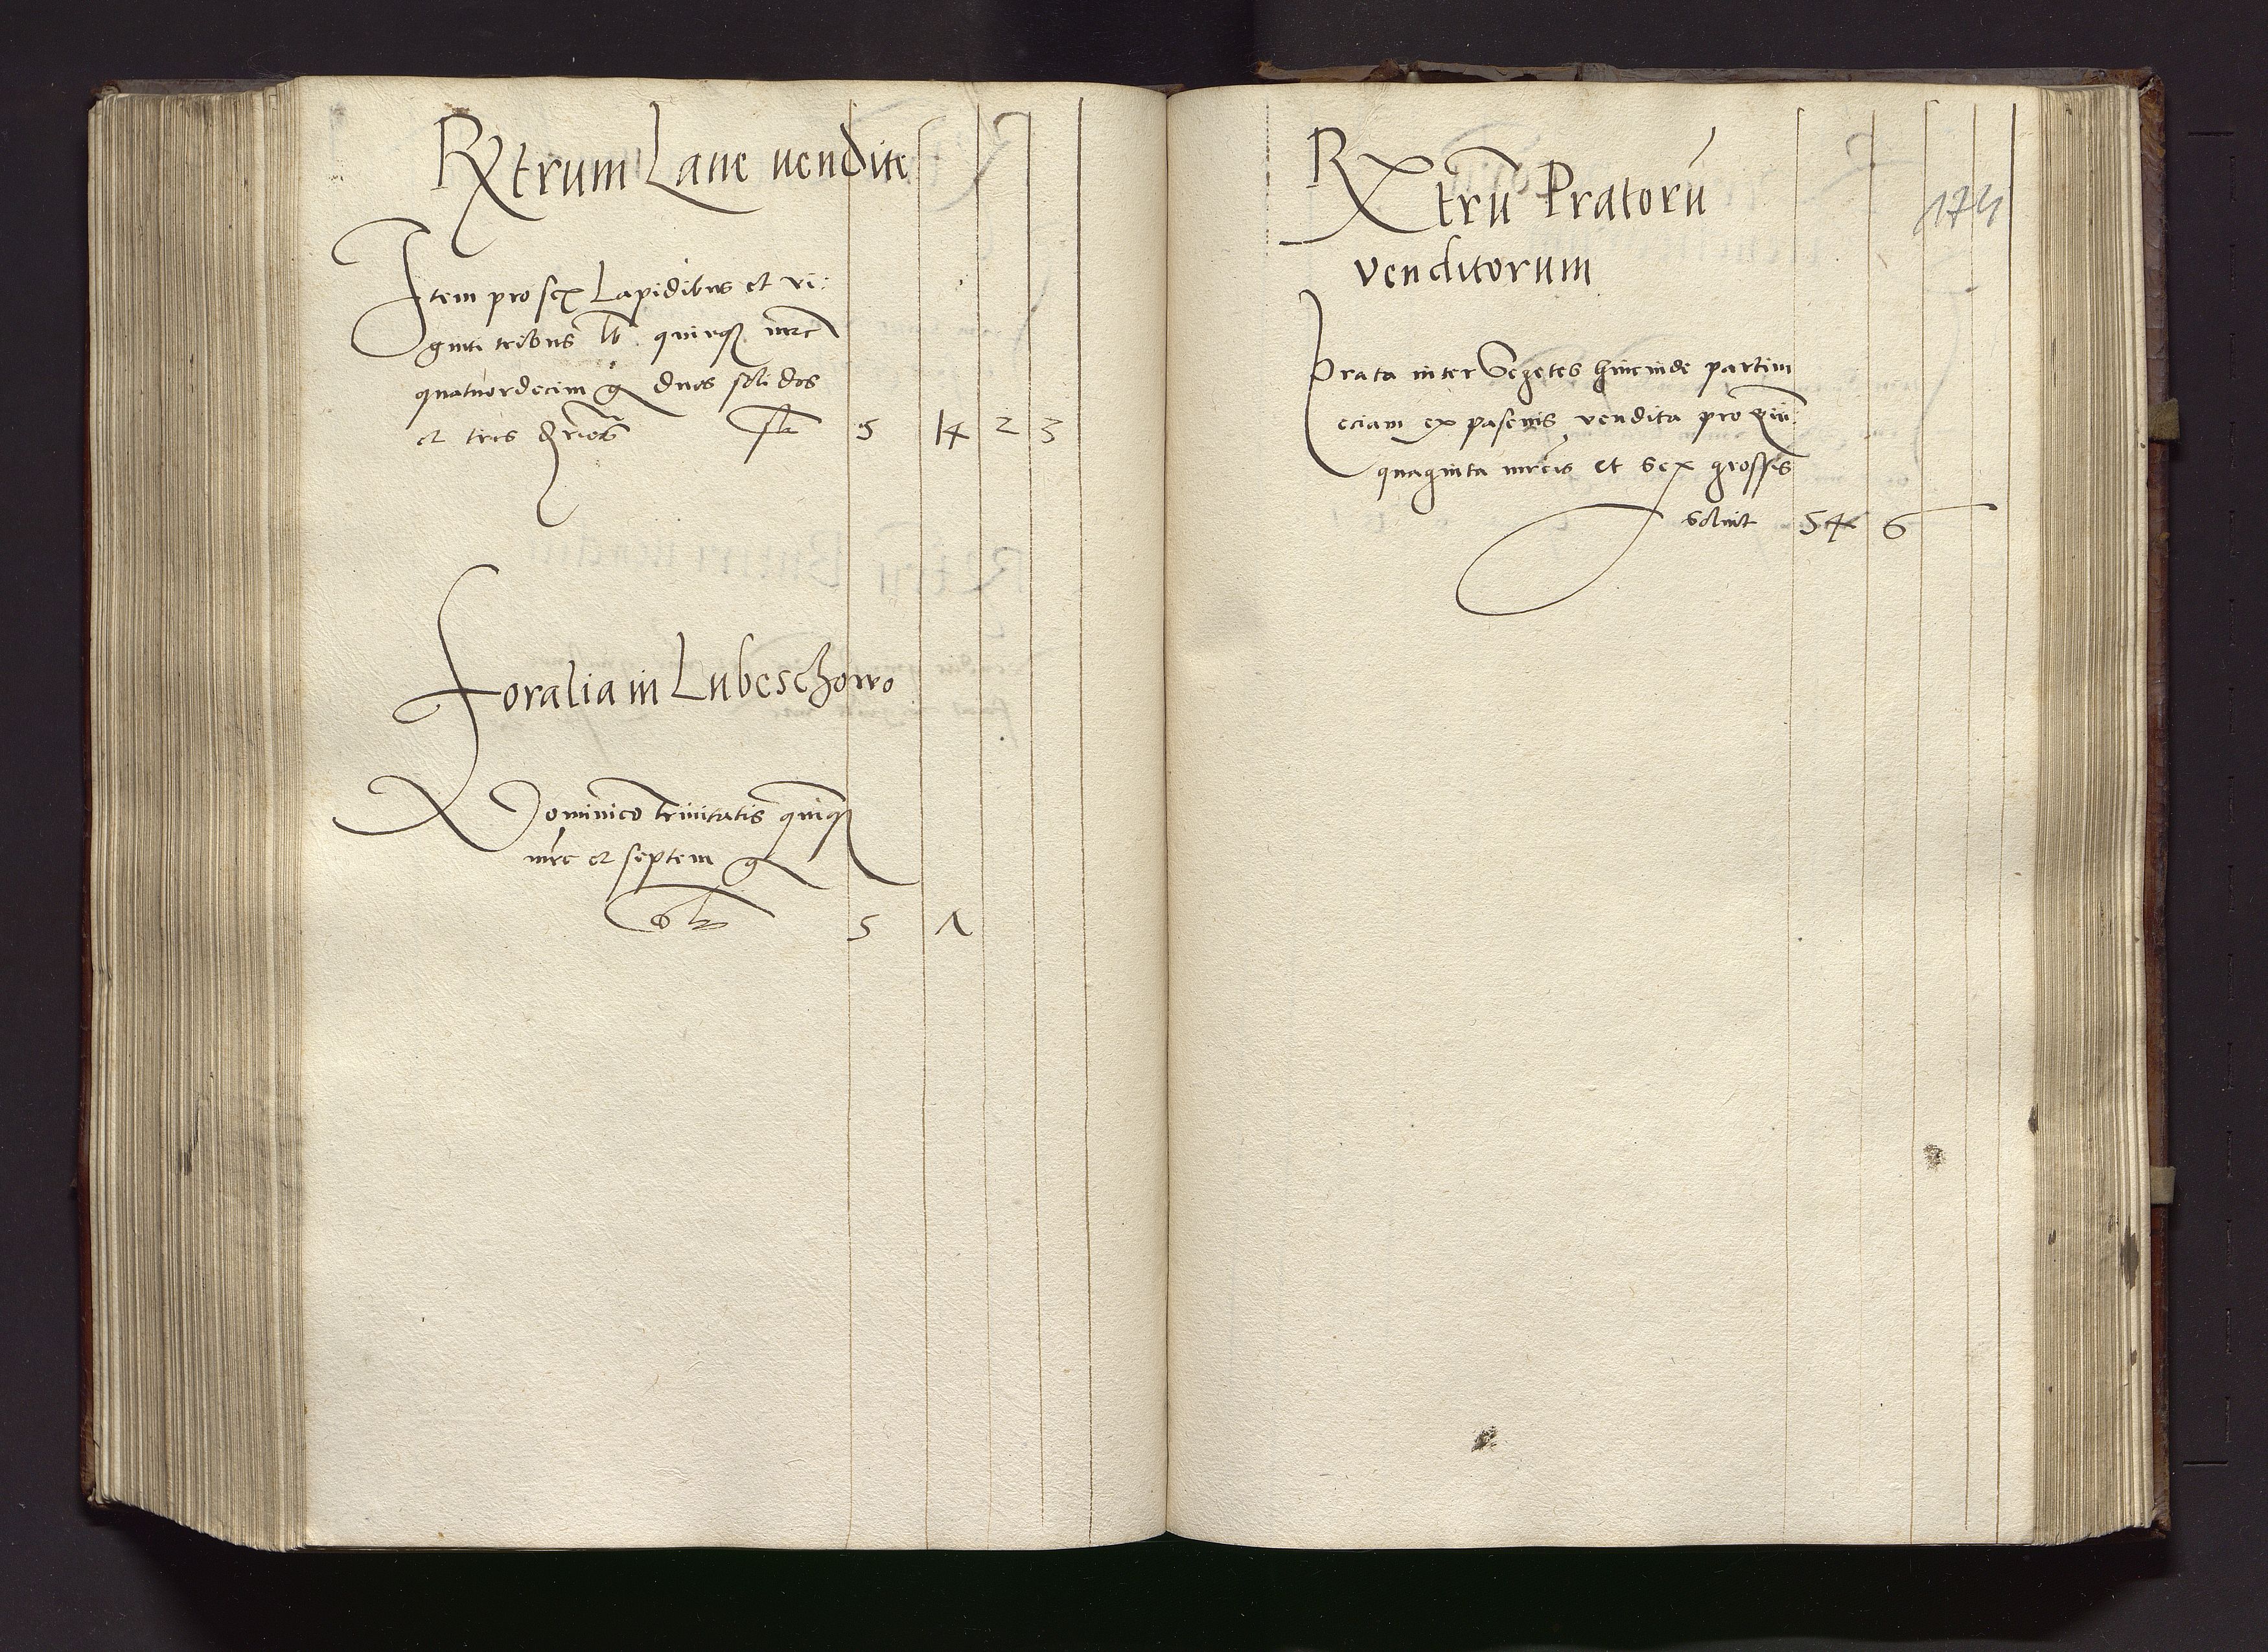 Rxtrum Lane vendite
Item pro sex Lapidibus et vi:
ginti tribus lb quinq mrc
quatuordecim g duos solidos
et tres 5 14 2 3
Foralia in Lubeschowo
Dominico trinitatis quinq
mrc et septem g
5 Λ
Rxtrū Pratorū
174
venditorum
Prata inter Segetes hincinde partim
eciam ex pascuis vendita pro quin:
quaginta mrcis et sex grossis
soluit 54 6